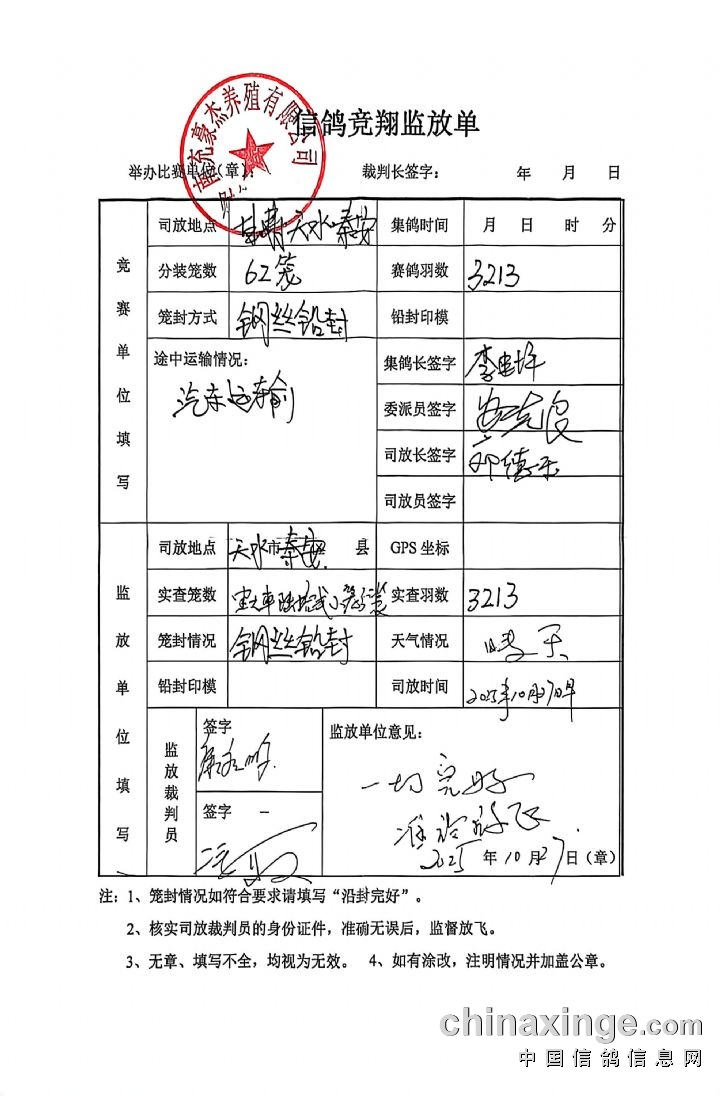 南充豪杰养殖有限公司
信鸽竞翔监放单
举办比赛单位(章): 裁判长签字: 年 月 日
竞赛单位填写
司放地点 甘肃天水秦安 集鸽时间 月 日 时 分
分装笼数 62笼 赛鸽羽数 3213
笼封方式 钢丝铅封 铅封印模
途中运输情况: 集鸽长签字
汽车运输 委派员签字
司放长签字 邓德
司放员签字
监放单位填写
司放地点 天水市秦安县 GPS 坐标
实查笼数 实查羽数 3213
笼封情况 钢丝铅封 天气情况 晴天
铅封印模 司放时间 2025年10月27日
监放裁判员 签字 监放单位意见:
一切完好
签字 准许放飞
2025年10月27日(章)
注:1、笼封情况如符合要求请填写“沿封完好”。
2、核实司放裁判员的身份证件,准确无误后,监督放飞。
3、无章、填写不全,均视为无效。 4、如有涂改,注明情况并加盖公章。
chinaxinge.com
中国信鸽信息网